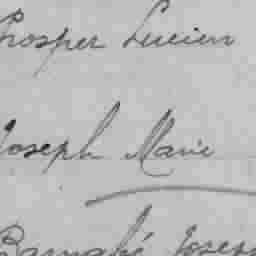 Prosper Lucien
Joseph Marie
Barnabé Joseph